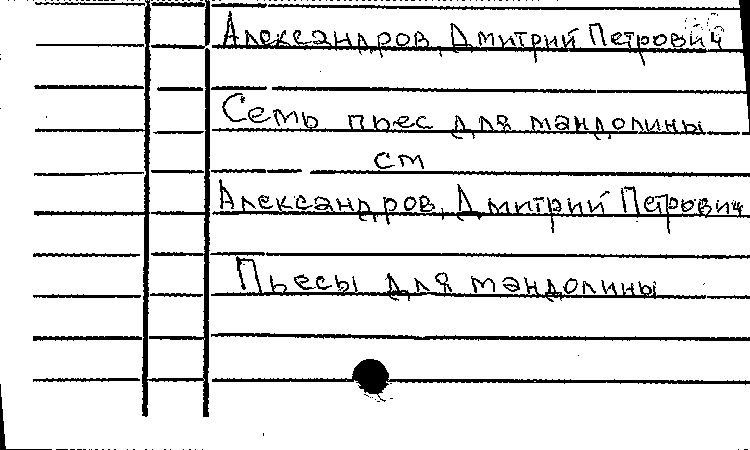 Александров, Дмитрий Петрович
Семь пьес для мандолины
см
Александров, Дмитрий Петрович
Пьесы для мандолины